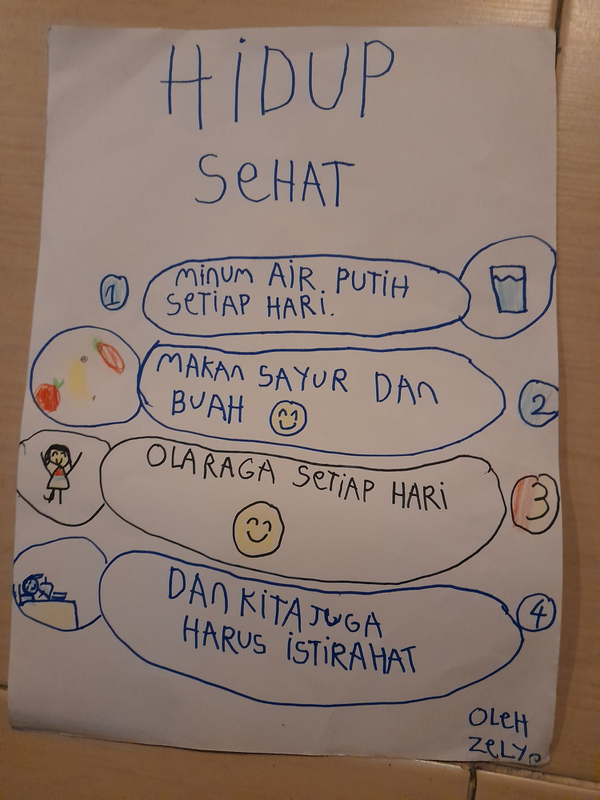 HiDUP
SeHAT
1
minum AiR PUTiH
SeTiAP HARi.
MAKAn SAYUR DAn
BUAH
2
OLARAGA SeTiAP HARi
3
DAn KiTA JUGA
HARUS iSTiRAHAT
4
OLeH
ZeLYp